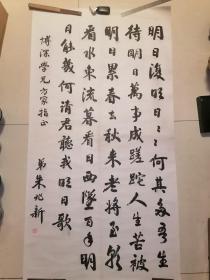 明日復明日々々何其多吾生
待明日萬事成蹉跎人生苦被
明日累春去秋來老將至朝
看水東流暮看日西墜百年明
日能幾何請君聽我明日歌
博深學兄方家指正
弟朱兆新